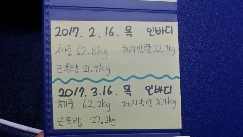 2017. 2. 16. 목 인바디
체중 62.8kg 체지방량 22.7kg
근육량 21.7kg
2017. 3. 16. 목 인바디
체중 62.2kg 체지방량
근육량 22.2kg